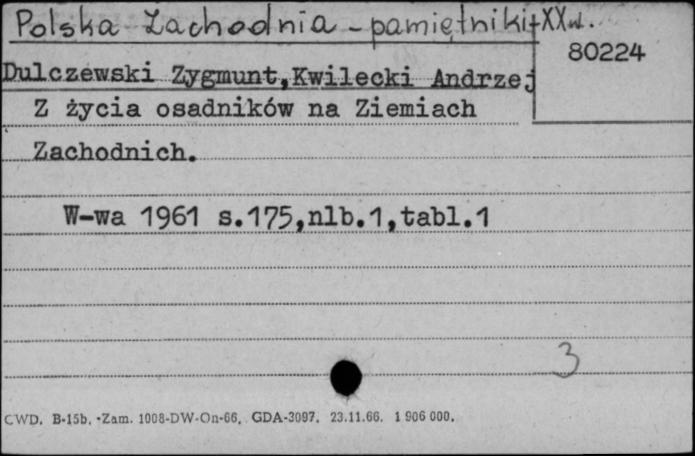 Polska Zachodnia - pamiętniki + XX w.
80224
Dulczewski Zygmunt,Kwilecki Andrzej
Z życia osadników na Ziemiach
Zachodnich.
W-wa 1961 s.175,nlb.1,tabl.1
3
CWD. B-15b. -Zam. 1008-DW-On-66. GDA-3097. 23.11.66. 1 906 000.